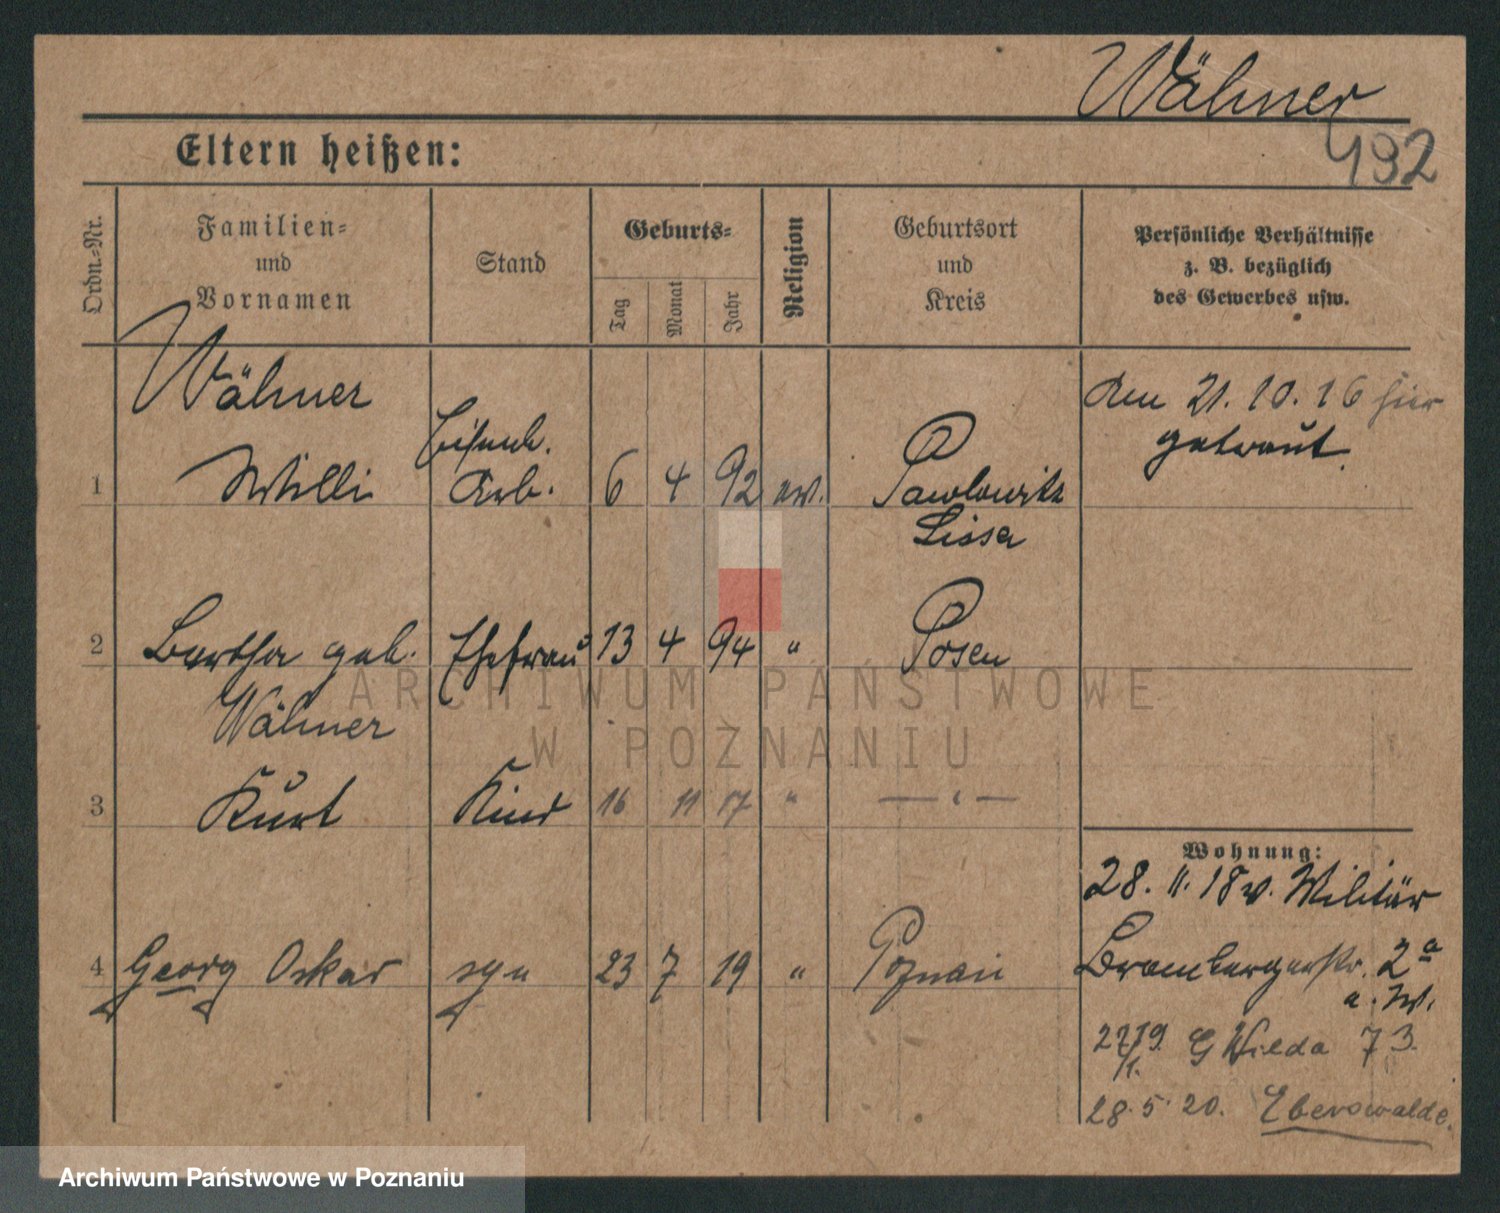 Wähner
492
Eltern heißen:
Ordn.-Nr.
Familien-
und
Vornamen
Stand
Geburts-
Tag
Monat
Jahr
Religion
Geburtsort
und
Kreis
Persönliche Verhältnisse
z. B. bezüglich
des Gewerbes usw.
Wähner
Den 21. 10. 16 hier
getraut.
Eisenb.
1 Willi Arb. 6 4 92 ev. Pawlowitz
Lissa
2 Bertha geb. Ehefrau 13 4 94 " Posen
Wähner
3 Kurt Kind 16 11 17 " — " —
Wohnung:
28. 11. 18 v. Militär
4 Georg Oskar syn 23 7 19 " Poznań
Brombergerstr. 2a
a. W.
27/1. 19. G Wilda 73.
28. 5. 20. Eberswalde.
ARCHIWUM PAŃSTWOWE
W POZNANIU
Archiwum Państwowe w Poznaniu